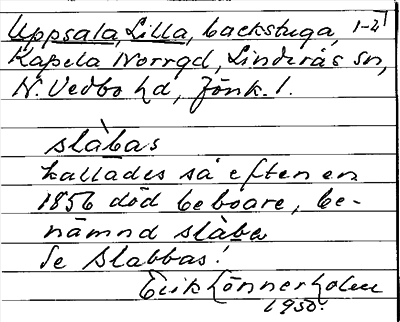 Uppsala, Lilla, backstuga, 1-21
Kapela Norrgd, Linderås sn,
N. Vedbo hd, Jönk. l.
slàbas
kallades så eften en
1856 död beboare, be-
nämnd slàba
Se Slabbas!
Erik Lönnerholm
1950.